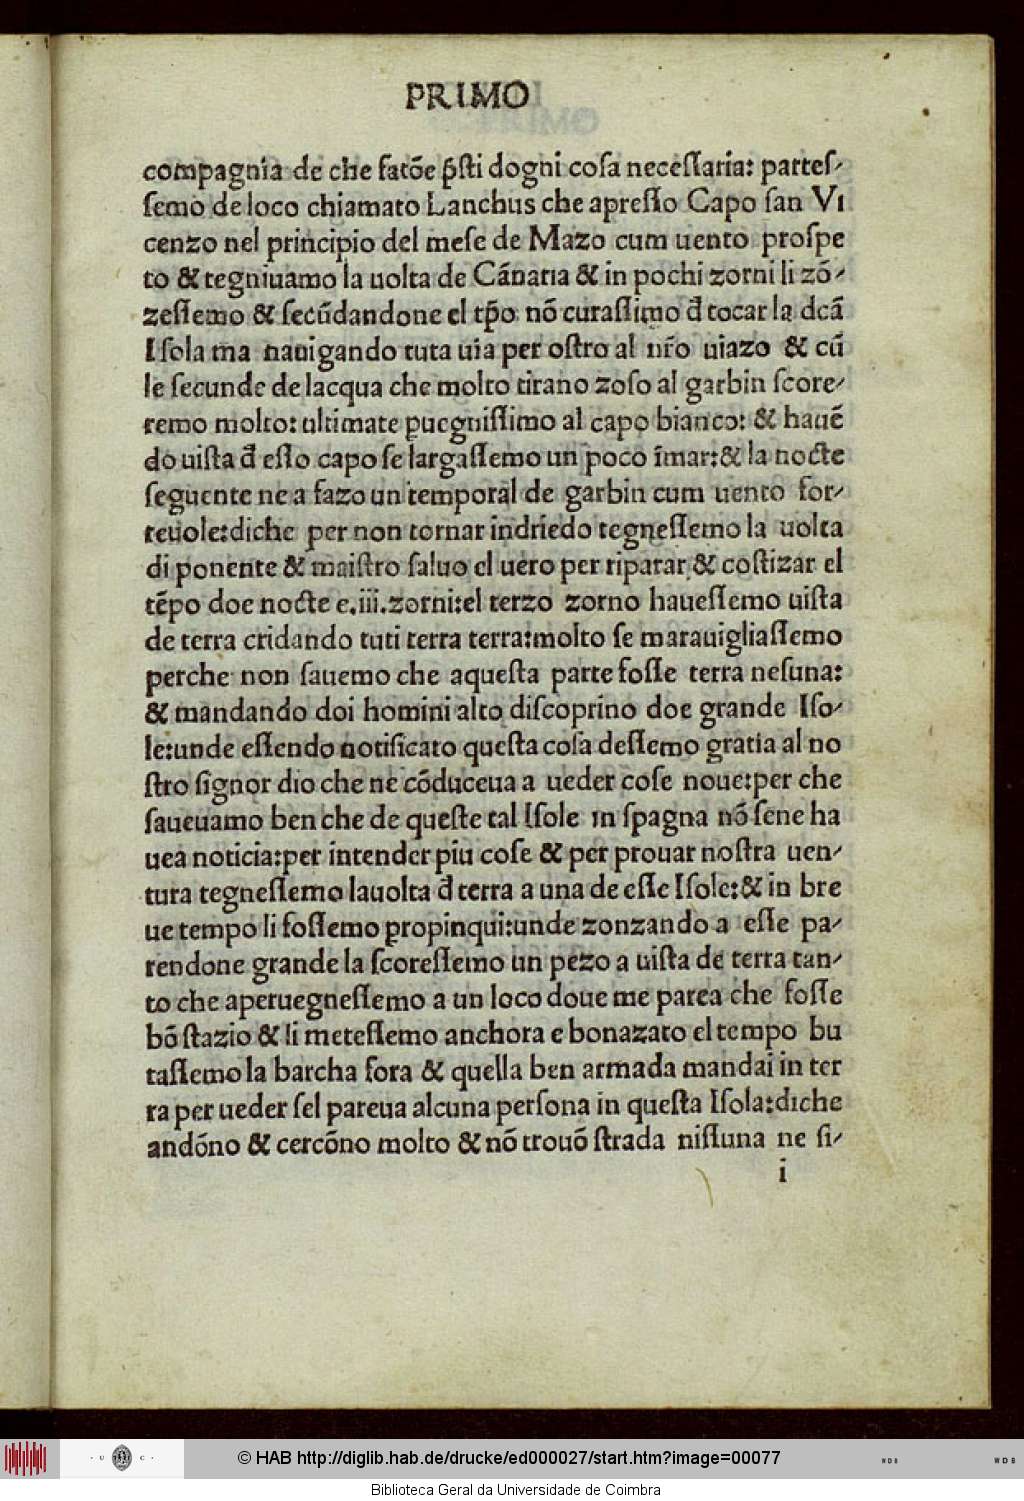 PRIMO
compagnia de che fatõe p̃sti dogni coſa neceſſaria: parteſ-
ſemo de loco chiamato Lanchus che apreſſo Capo ſan Vi
cenzo nel principio del meſe de Mazo cum uento proſpe
to & tegniuamo la uolta de Cãnaria & in pochi zorni li zõ-
zeſſemo & ſecũdandone el tp̃o nõ curaſſimo đ tocar la dcã
Iſola ma nauigando tuta uia per oſtro al nr̃o uiazo & cũ
le ſecunde de lacqua che molto tirano zoſo al garbin ſcore-
remo molto: ultimate ꝑuegniſſimo al capo bianco: & hauẽ
do uiſta đ eſſo capo ſe largaſſemo un poco ĩmar:& la nocte
ſeguente ne a fazo un temporal de garbin cum uento for-
teuole:diche per non tornar indriedo tegneſſemo la uolta
di ponente & maiſtro ſaluo el uero per riparar & coſtizar el
tẽpo doe nocte e.iii.zorni:el terzo zorno haueſſemo uiſta
de terra cridando tuti terra terra:molto ſe marauigliaſſemo
perche non ſauemo che aqueſta parte foſſe terra neſuna:
& mandando doi homini alto diſcoprino doe grande Iſo-
le:unde eſſendo notificato queſta coſa deſſemo gratia al no
ſtro ſignor dio che ne cõduceua a ueder coſe noue:per che
ſaueuamo ben che de queſte tal Iſole in ſpagna nõ ſene ha
uea noticia:per intender piu coſe & per prouar noſtra uen-
tura tegneſſemo lauolta đ terra a una de eſſe Iſole:& in bre
ue tempo li foſſemo propinqui:unde zonzando a eſſe pa-
rendone grande la ſcoreſſemo un pezo a uiſta de terra tan-
to che aperuegneſſemo a un loco doue me parea che foſſe
bõ ſtazio & li meteſſemo anchora e bonazato el tempo bu
taſſemo la barcha fora & quella ben armada mandai in ter
ra per ueder ſel pareua alcuna perſona in queſta Iſola:diche
andõno & cercõno molto & nõ trouõ ſtrada niſſuna ne ſi-
i
© HAB http://diglib.hab.de/drucke/ed000027/start.htm?image=00077
· U C ·
WDB
WDB
Biblioteca Geral da Universidade de Coimbra